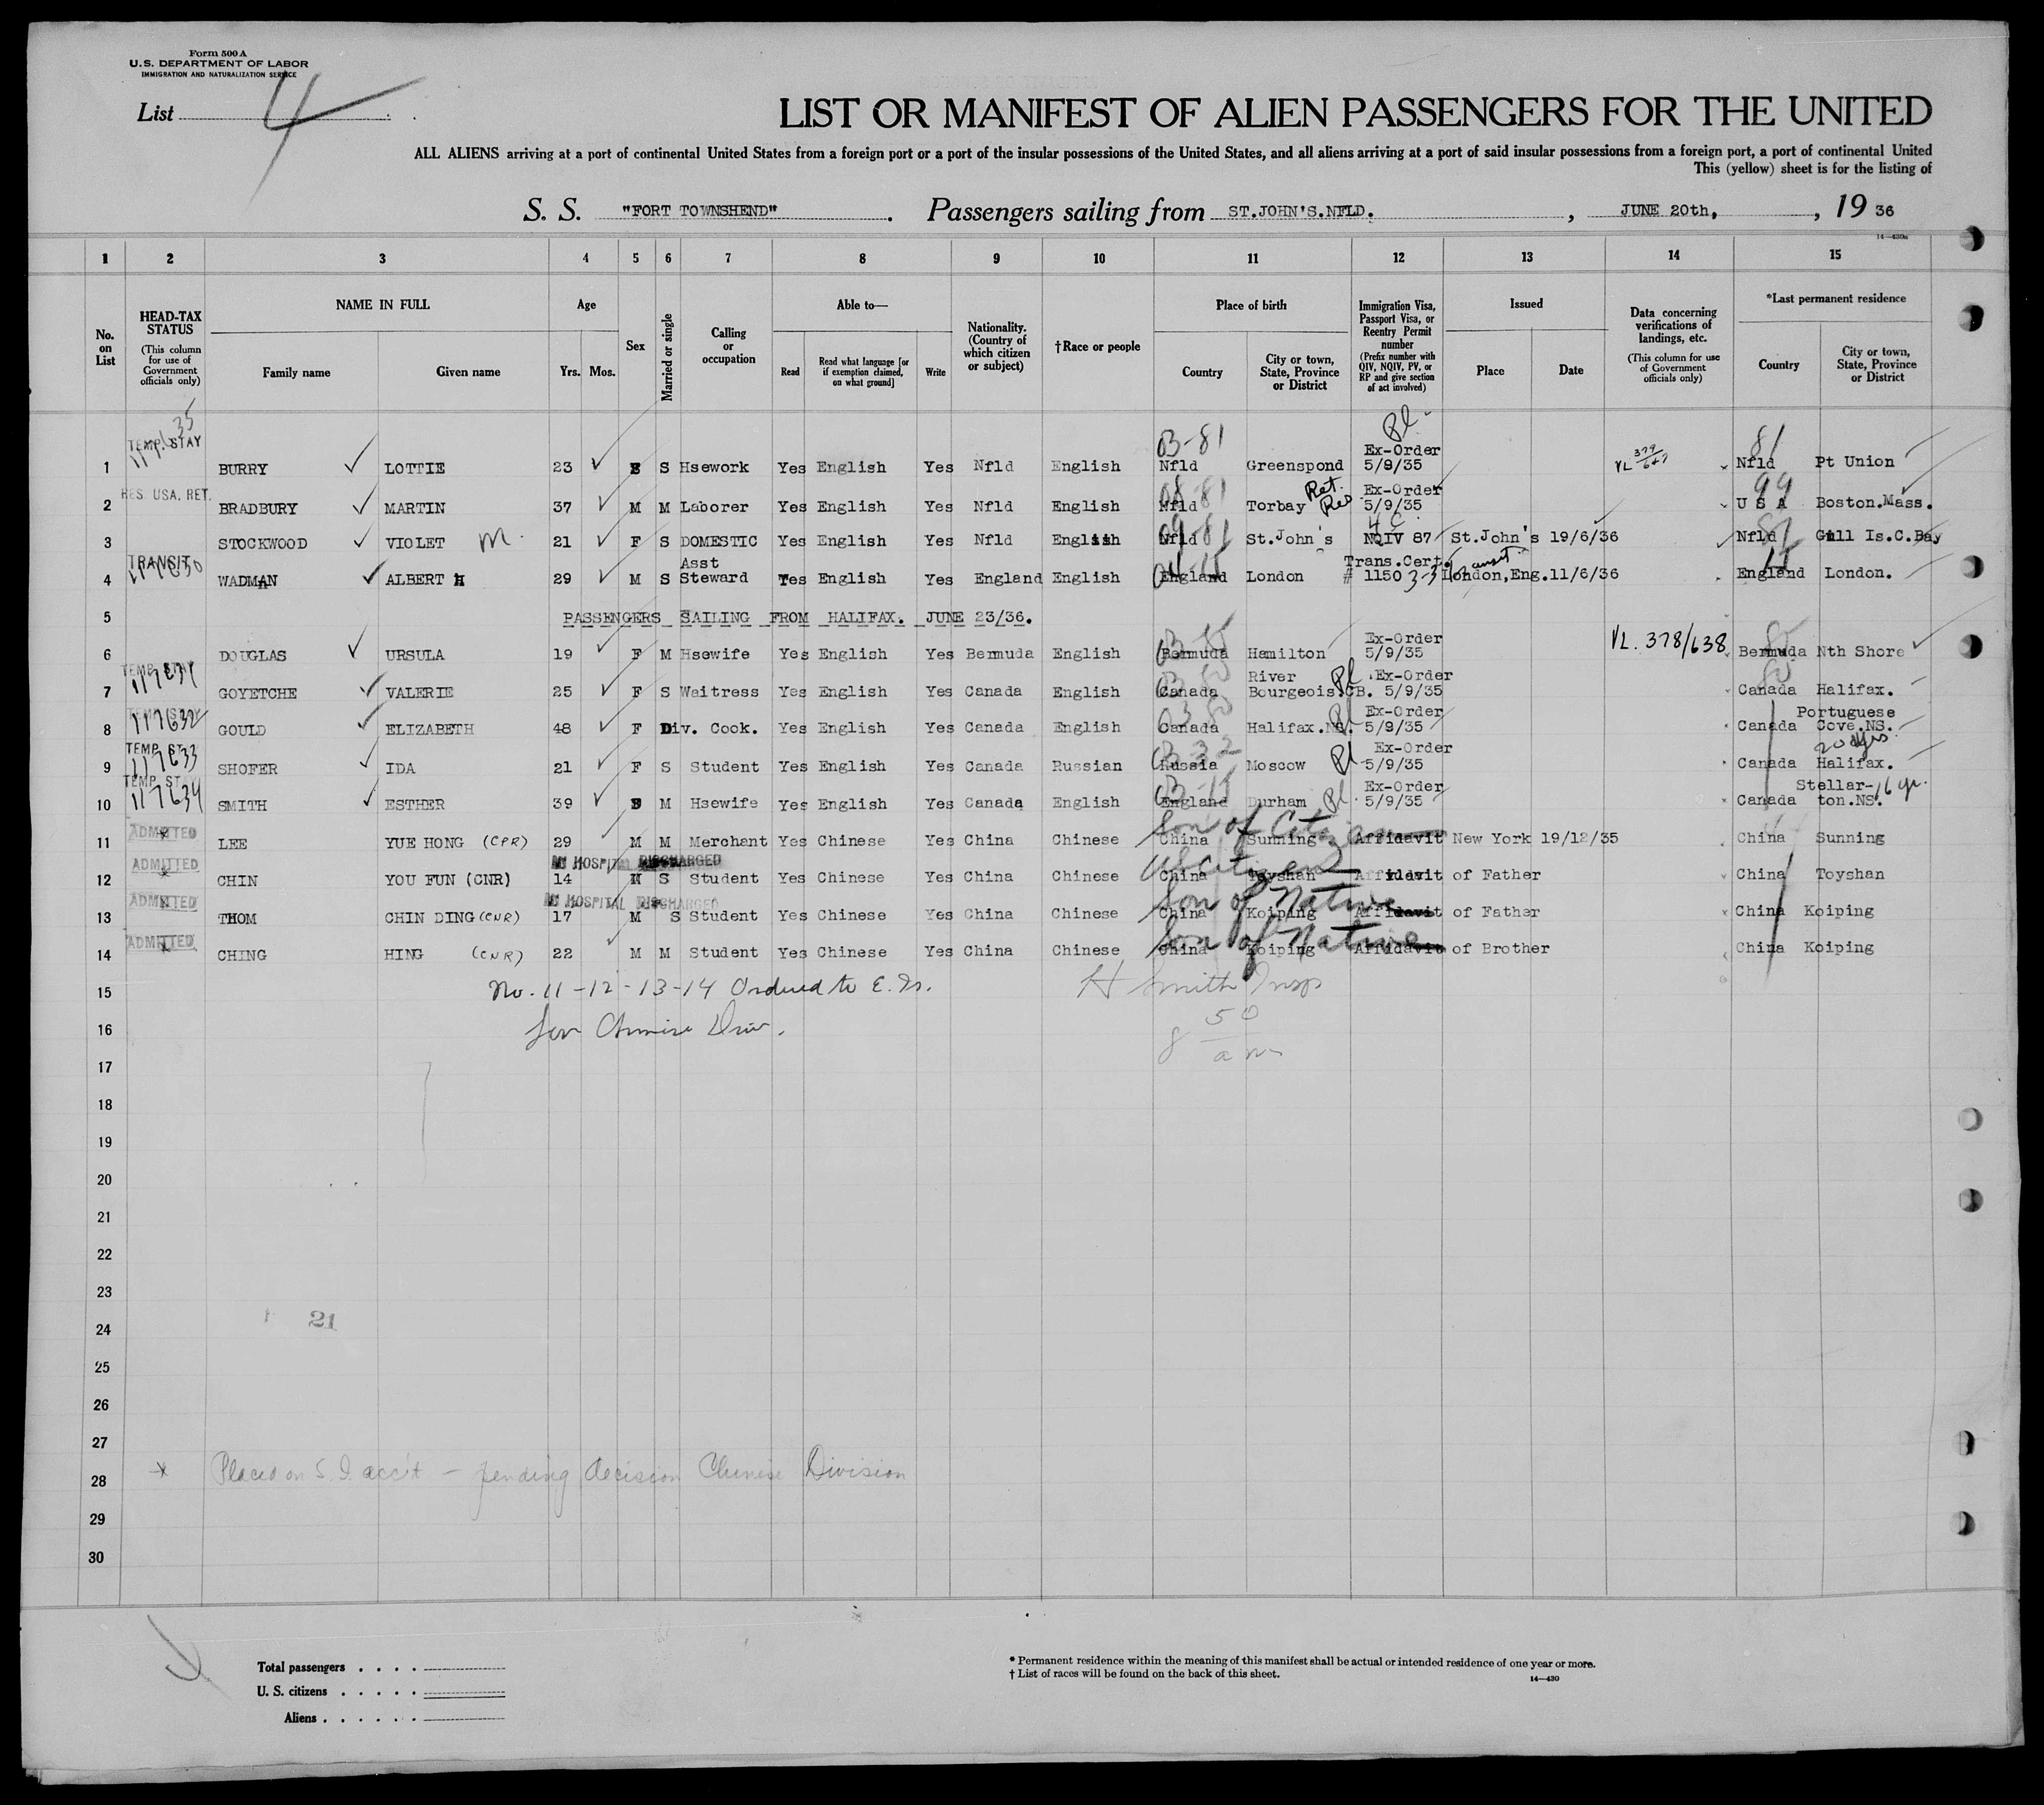 Form 500 A
U.S. DEPARTMENT OF LABOR
IMMIGRATION AND NATURALIZATION SERVICE
List 4
LIST OR MANIFEST OF ALIEN PASSENGERS FOR THE UNITED
ALL ALIENS arriving at a port of continental United States from a foreign port or a port of the insular possessions of the United States, and all aliens arriving at a port of said insular possessions from a foreign port, a port of continental United
This (yellow) sheet is for the listing of
S. S. "FORT TOWNSHEND". Passengers sailing from ST.JOHN'S.NFLD. , JUNE 20th, , 19 36
14-430a
1 2 3 4 5 6 7 8 9 10 11 12 13 14 15
No. on List
HEAD-TAX STATUS (This column for use of Government officials only)
NAME IN FULL Family name Given name
Age Yrs. Mos.
Sex
Married or single
Calling or occupation
Able to— Read Read what language [or if exemption claimed, on what ground] Write
Nationality. (Country of which citizen or subject)
†Race or people
Place of birth Country City or town, State, Province or District
Immigration Visa, Passport Visa, or Reentry Permit number (Prefix number with QIV, NQIV, PV, or RP and give section of act involved)
Issued Place Date
Data concerning verifications of landings, etc. (This column for use of Government officials only)
*Last permanent residence Country City or town, State, Province or District
TEMP. STAY 03-81 81
1 BURRY LOTTIE 23 S Hsework Yes English Yes Nfld English Nfld Greenspond Ex-Order 5/9/35 Nfld Pt Union
RES. USA. RET. 99
2 BRADBURY MARTIN 37 M M Laborer Yes English Yes Nfld English Nfld Torbay Ret. Res Ex-Order 5/9/35 U S A Boston.Mass.
3 STOCKWOOD VIOLET M. 21 F S DOMESTIC Yes English Yes Nfld English Nfld St.John's 4 C NQIV 87 St.John's 19/6/36 Nfld Gull Is.C.Bay
TRANSIT
4 WADMAN ALBERT H 29 M S Asst Steward Yes English Yes England English England London Trans.Cert. # 1150 3-3 transit London,Eng.11/6/36 England London.
5 PASSENGERS SAILING FROM HALIFAX. JUNE 23/36.
6 DOUGLAS URSULA 19 F M Hsewife Yes English Yes Bermuda English Bermuda Hamilton Ex-Order 5/9/35 VL. 378/638 Bermuda Nth Shore
TEMP. STAY
7 GOYETCHE VALERIE 25 F S Waitress Yes English Yes Canada English Canada River Bourgeois.CB. Ex-Order 5/9/35 Canada Halifax.
TEMP. STAY 117632
8 GOULD ELIZABETH 48 F Div. Cook. Yes English Yes Canada English Canada Halifax.NS. Ex-Order 5/9/35 Canada Portuguese Cove.NS.
TEMP. ST 117633 20 yrs.
9 SHOFER IDA 21 F S Student Yes English Yes Canada Russian Russia Moscow Ex-Order 5/9/35 Canada Halifax.
TEMP. STAY 117634
10 SMITH ESTHER 39 M Hsewife Yes English Yes Canada English England Durham Ex-Order 5/9/35 Canada Stellar-ton.NS. 16 yr.
ADMITTED Son of Citizen
11 LEE YUE HONG (CPR) 29 M M Merchant Yes Chinese Yes China Chinese China Sunning Affidavit New York 19/12/35 China Sunning
ADMITTED HOSPITAL DISCHARGED US Citizen
12 CHIN YOU FUN (CNR) 14 M S Student Yes Chinese Yes China Chinese China Toyshan Affidavit of Father China Toyshan
ADMITTED HOSPITAL DISCHARGED Son of Native
13 THOM CHIN DING (CNR) 17 M S Student Yes Chinese Yes China Chinese China Koiping Affidavit of Father China Koiping
ADMITTED Son of Native
14 CHING HING (CNR) 22 M M Student Yes Chinese Yes China Chinese China Koiping Affidavit of Brother China Koiping
15 No. 11-12-13-14 Ordered to E. Is. H Smith Insp
16 for Chinese Div. 8 50 am
17
18
19
20
21
22
23
24 21
25
26
27
28 * Placed on S. I. acc't — pending decision Chinese Division
29
30
Total passengers . . . .
U. S. citizens . . . . .
Aliens . . . . . .
* Permanent residence within the meaning of this manifest shall be actual or intended residence of one year or more.
† List of races will be found on the back of this sheet.
14-430